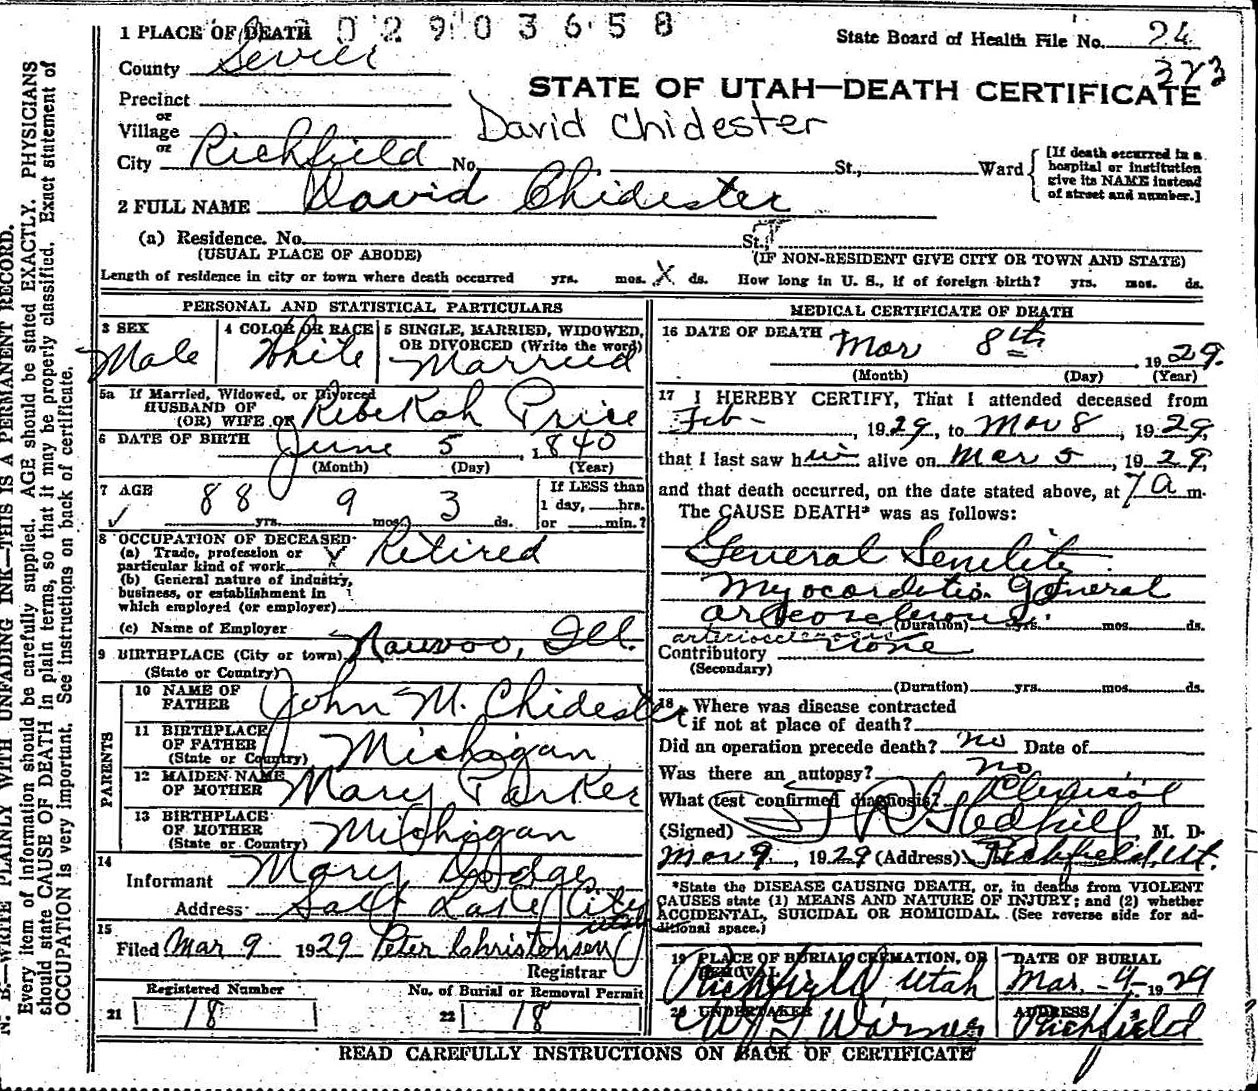 1 PLACE OF DEATH 0 2 9 0 3 6 5 8
State Board of Health File No. 24
County Sevier
323
STATE OF UTAH—DEATH CERTIFICATE
Precinct
or
Village
David Chidester
or
City Richfield No. St., Ward
[If death occurred in a hospital or institution give its NAME instead of street and number.]
2 FULL NAME David Chidester
(a) Residence. No. St.,
(USUAL PLACE OF ABODE) (IF NON-RESIDENT GIVE CITY OR TOWN AND STATE)
Length of residence in city or town where death occurred yrs. mos. X ds. How long in U. S., if of foreign birth? yrs. mos. ds.
PERSONAL AND STATISTICAL PARTICULARS
3 SEX Male
4 COLOR OR RACE White
5 SINGLE, MARRIED, WIDOWED, OR DIVORCED (Write the word) Married
5a If Married, Widowed, or Divorced
HUSBAND OF
(OR) WIFE OF Rebekah Price
6 DATE OF BIRTH June 5, 1840
(Month) (Day) (Year)
7 AGE 88 yrs. 9 mos. 3 ds.
If LESS than 1 day, hrs. or min.?
8 OCCUPATION OF DECEASED
(a) Trade, profession or particular kind of work Retired
(b) General nature of industry, business, or establishment in which employed (or employer)
(c) Name of Employer
9 BIRTHPLACE (City or town) Nauvoo, Ill.
(State or Country)
PARENTS
10 NAME OF FATHER John M. Chidester
11 BIRTHPLACE OF FATHER Michigan
(State or Country)
12 MAIDEN NAME OF MOTHER Mary Parker
13 BIRTHPLACE OF MOTHER Michigan
(State or Country)
14
Informant Mary Dodge
Address Salt Lake City
Utah
15
Filed Mar 9 1929 Peter Christensen
Registrar
Registered Number No. of Burial or Removal Permit
21 18 22 18
MEDICAL CERTIFICATE OF DEATH
16 DATE OF DEATH Mar 8th, 1929.
(Month) (Day) (Year)
17 I HEREBY CERTIFY, That I attended deceased from
Feb-, 1929, to Mar 8, 1929,
that I last saw him alive on Mar 5, 1929,
and that death occurred, on the date stated above, at 7 a m.
The CAUSE DEATH* was as follows:
General Senility.
Myocarditis. General
(Duration) yrs. mos. ds.
arteriosclerosis
Contributory None
(Secondary)
(Duration) yrs. mos. ds.
18 Where was disease contracted
if not at place of death?
Did an operation precede death? no Date of
Was there an autopsy? no
What test confirmed diagnosis? Clinical
(Signed) M. D.
Mar 9, 1929 (Address) Richfield, Ut.
*State the DISEASE CAUSING DEATH, or, in deaths from VIOLENT
CAUSES state (1) MEANS AND NATURE OF INJURY; and (2) whether
ACCIDENTAL, SUICIDAL OR HOMICIDAL. (See reverse side for additional space.)
19 PLACE OF BURIAL, CREMATION, OR REMOVAL Richfield Utah
DATE OF BURIAL Mar. 1929
20 UNDERTAKER Warner
ADDRESS Richfield
READ CAREFULLY INSTRUCTIONS ON BACK OF CERTIFICATE
N. B.—WRITE PLAINLY WITH UNFADING INK—THIS IS A PERMANENT RECORD.
Every item of information should be carefully supplied. AGE should be stated EXACTLY. PHYSICIANS
should state CAUSE OF DEATH in plain terms, so that it may be properly classified. Exact statement of
OCCUPATION is very important. See instructions on back of certificate.